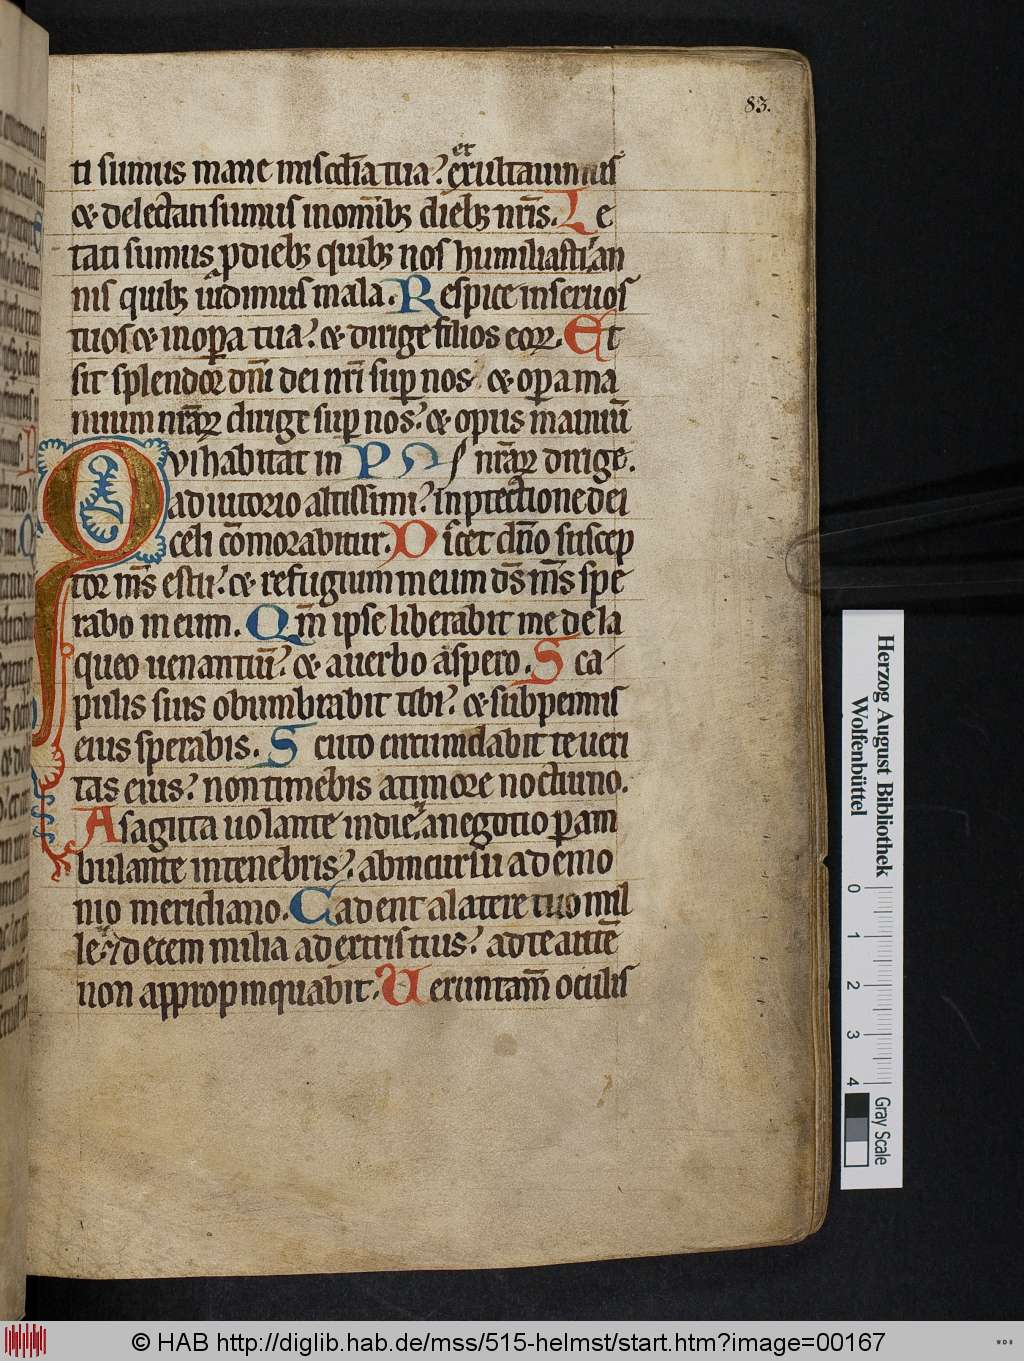 83.
ti sumus mane mis̄cdīa tua? et exultauimus
& delectati sumus in om̄ibꝫ diebꝫ nr̄is. Le
tati sumus ꝓ diebꝫ quibꝫ nos humiliasti? an
nis quibꝫ uidimus mala. Respice in seruos
tuos & in oꝑa tua? & dirige filios eoꝝ. Et
sit splendor dn̄i dei nr̄i suꝑ nos & oꝑa ma
nuum nr̄aꝝ dirige suꝑ nos? & opus manuū
nr̄aꝝ dirige.
Qvi habitat in PS
adiutorio altissimi? in ꝓtectione dei
celi cōmorabitur. Dicet dn̄o suscep
tor m̄s es tu? & refugium meum ds̄ m̄s spe
rabo in eum. Qm̄ ipse liberabit me de la
queo uenantiū? & a uerbo aspero. Sca
pulis suis obumbrabit tibi? & sub pennis
eius sperabis. Scuto circumdabit te ueri
tas eius? non timebis a timore nocturno.
A sagitta uolante in die? a negotio ꝑam
bulante in tenebris? ab incursu a demo
nio meridiano. Cadent a latere tuo mil
le? & decem milia a dextris tuis? ad te autē
non appropinquabit. Ueruntam̄ oculis
Herzog August Bibliothek
Wolfenbüttel
0 1 2 3 4
Gray Scale
© HAB http://diglib.hab.de/mss/515-helmst/start.htm?image=00167